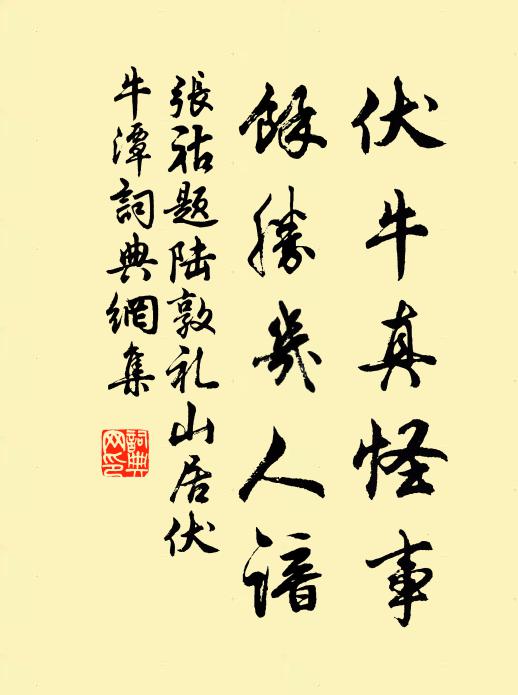 伏牛真怪事
餘勝幾人諳
張祜題陆敦礼山居伏
牛潭詞典網集
詞典
网印